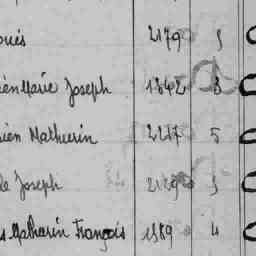 oués 2179 5
ien Marie Joseph 1842 3
sien Mathurin 2217 5
le Joseph 2129 5
s Mathurin François 1989 4